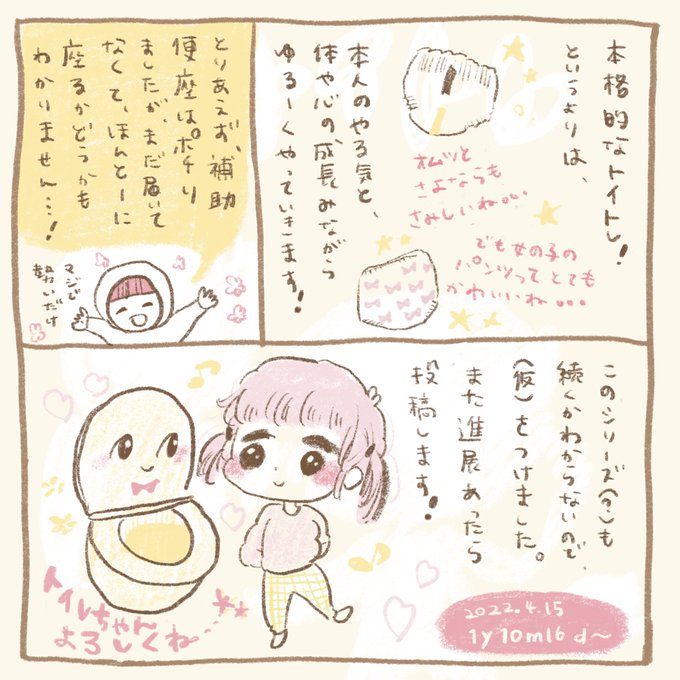 本格的なトイトレ!
というよりは、
オムツと
さよならも
さみしいね…
でも女の子の
パンツってとても
かわいいね…
本人のやる気と、
体や心の成長みながら
ゆるーくやっていきます!
とりあえず、補助
便座はポチり
ましたが、まだ届いて
なくて、ほんとーに
座るかどうかも
わかりません…!
マジで
勢いだけ
このシリーズ(?)も
続くかわからないので、
(仮)をつけました。
また進展あったら
投稿します!
トイレちゃん
よろしくね…
2022.4.15
1y10m16d~